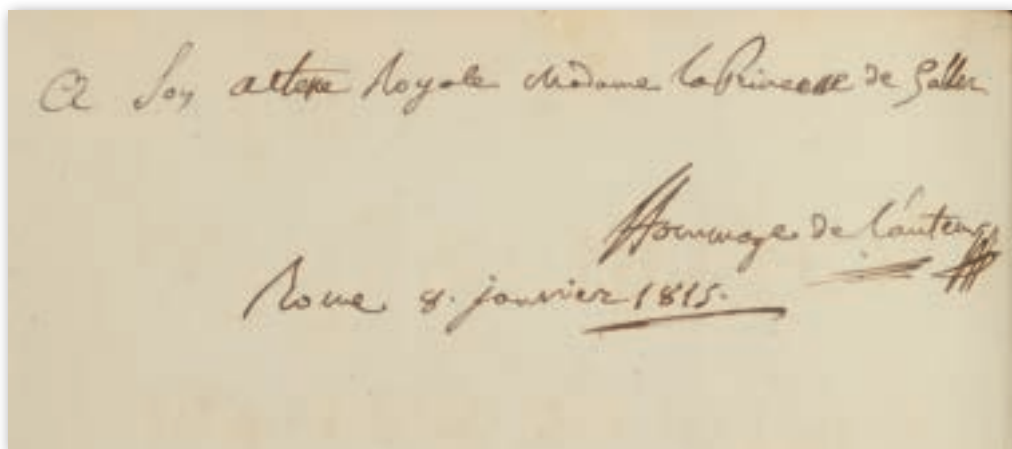 A Son altesse Royale Madame la Princesse de Galles
Hommage de l'auteur
Rome 8. janvier 1815.